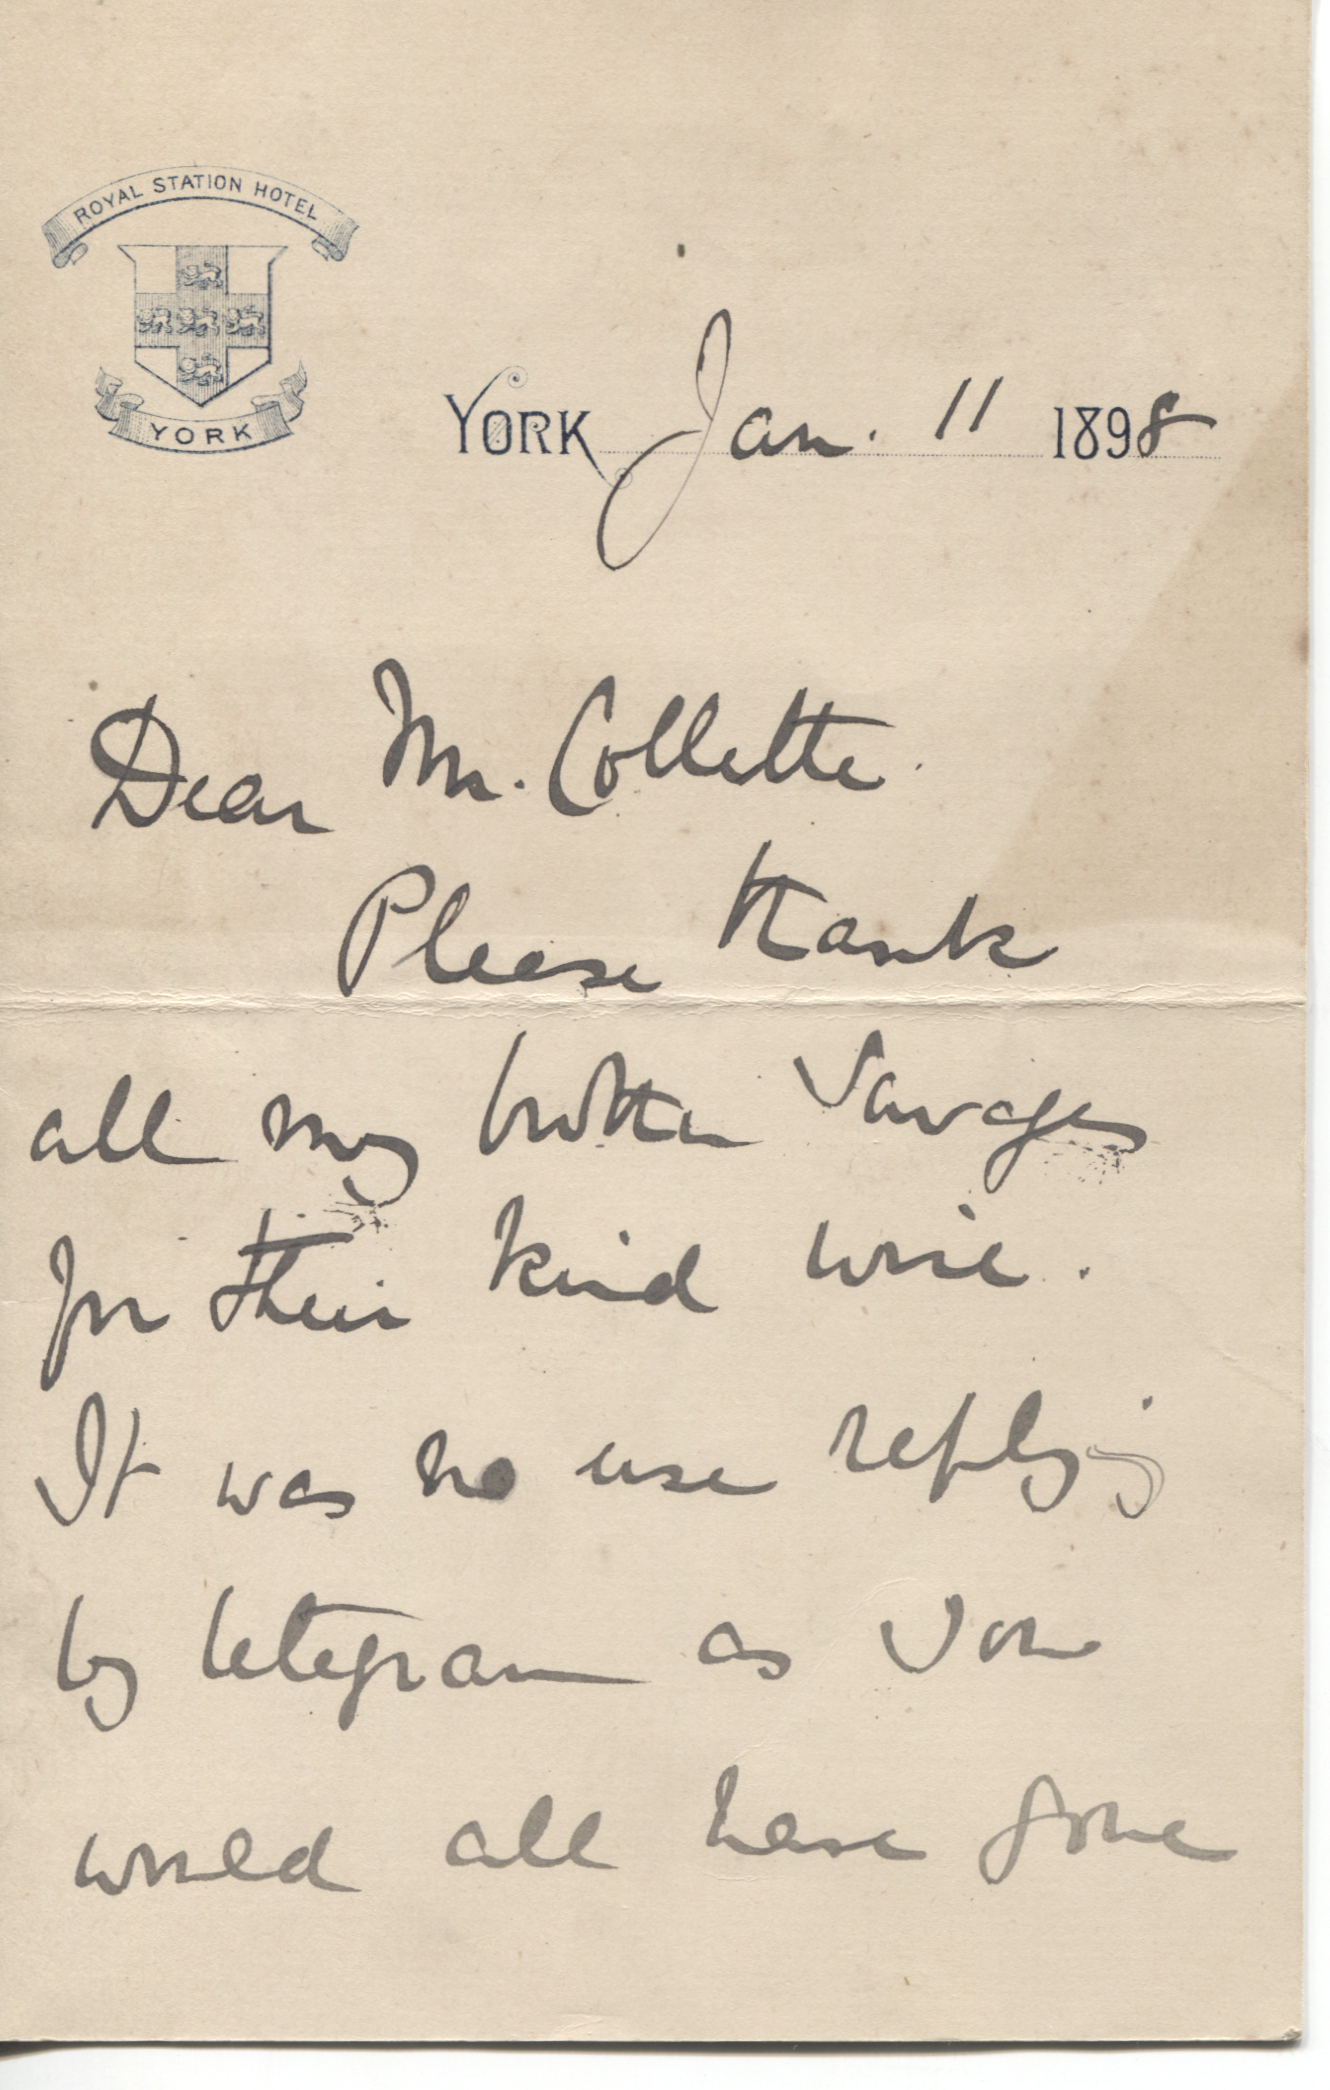 ROYAL STATION HOTEL
YORK
YORK Jan. 11 1898
Dear Mr. Collette.
Please thank
all my brother Savages
for their kind wire.
It was no use replying
by telegram as you
would all have gone